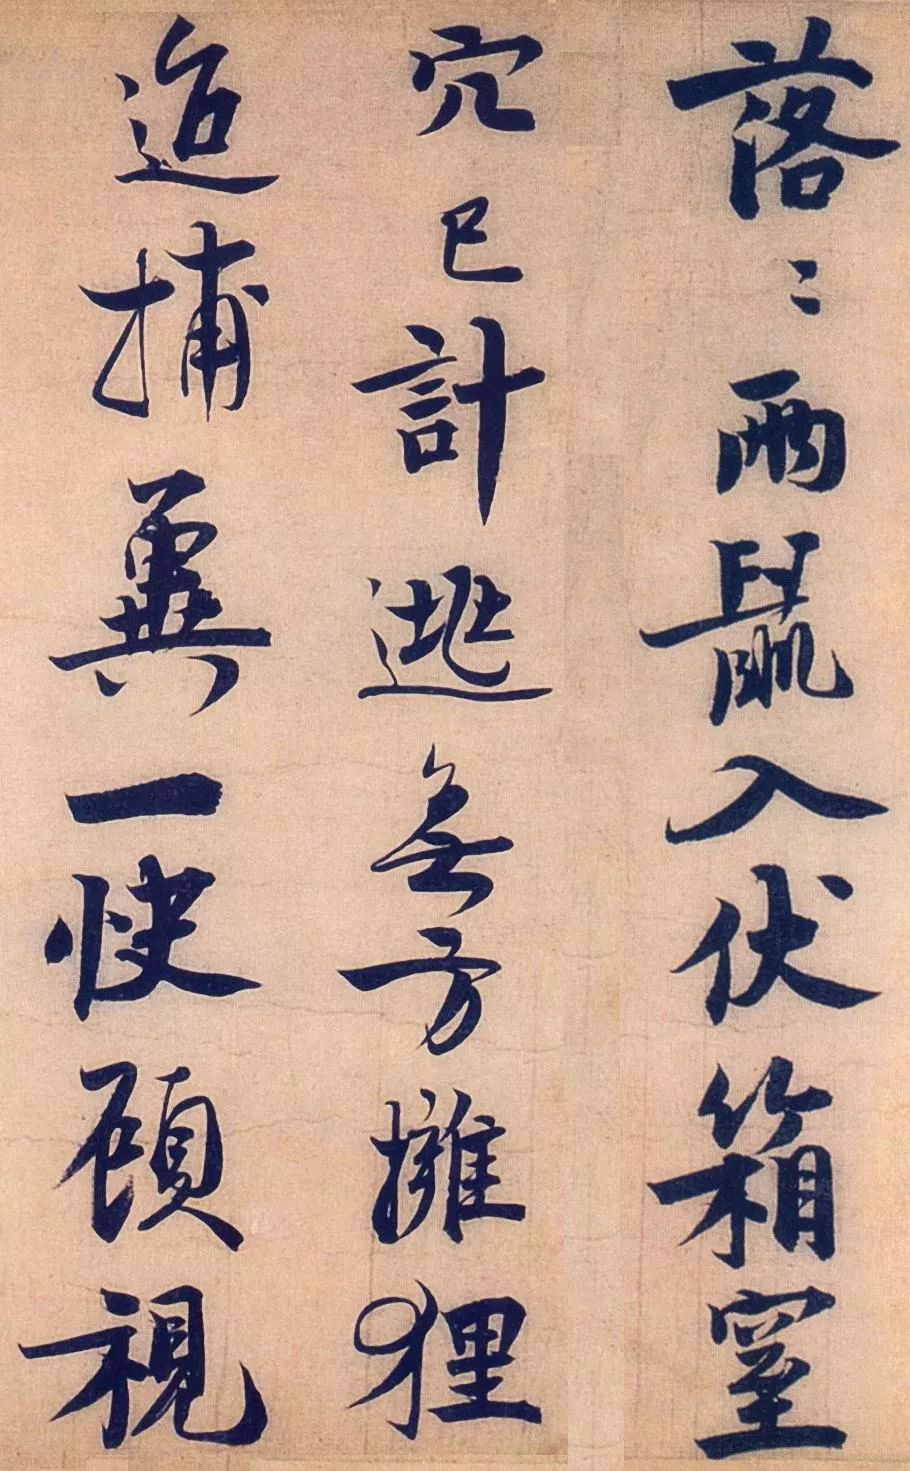 落〻兩鼠入伏箱窒
穴已計逃無方擁狸
追捕冀一快顧視